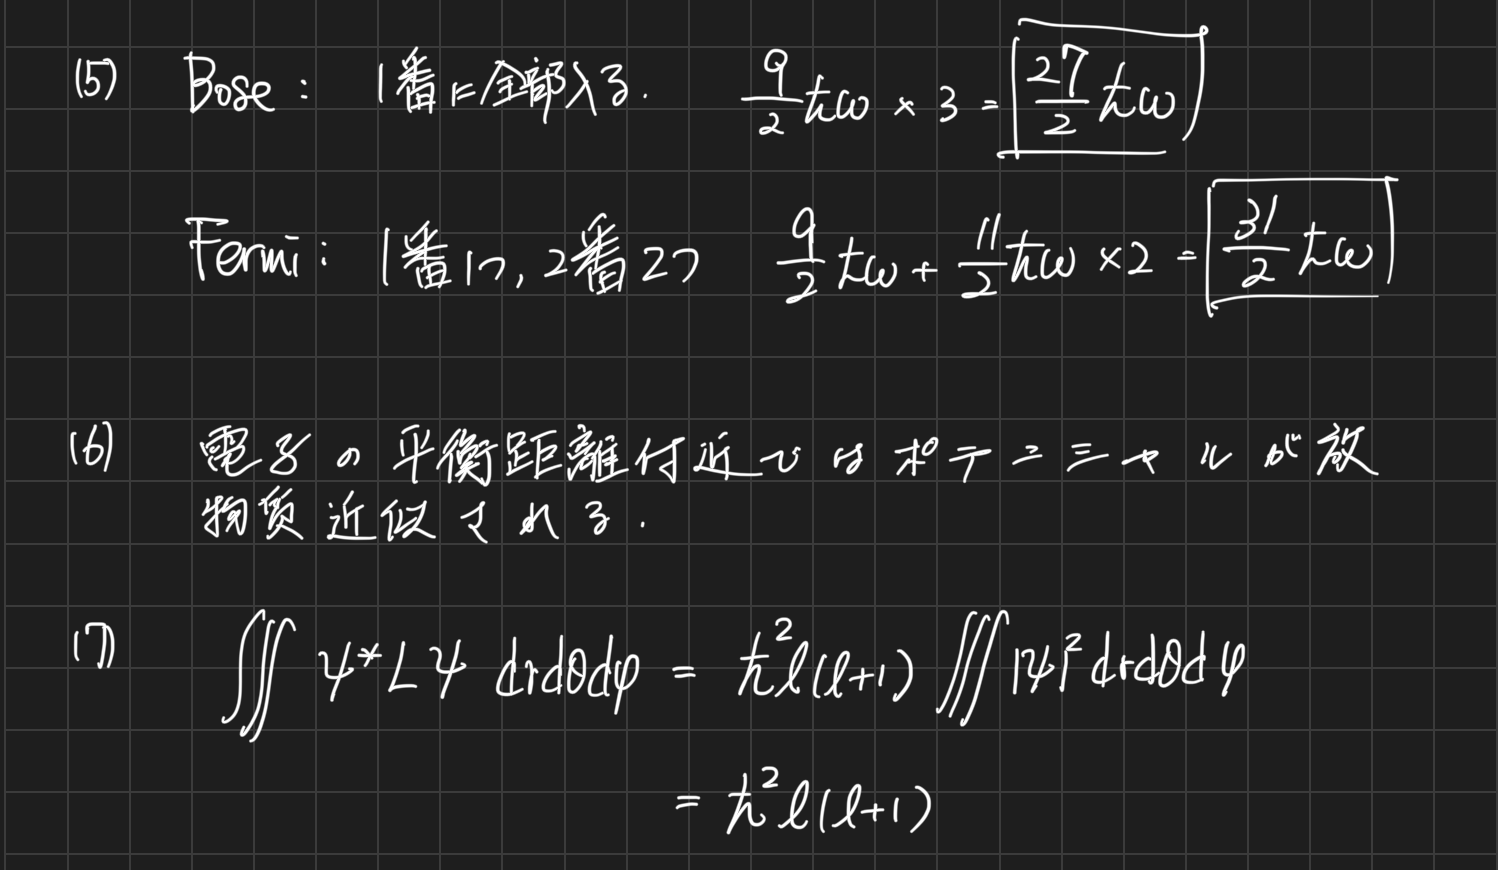 (5) Bose : 1番に全部入る. 9/2 ℏω × 3 = 27/2 ℏω
Fermi : 1番1つ, 2番2つ 9/2 ℏω + 11/2 ℏω ×2 = 31/2 ℏω
(6) 電子の平衡距離付近ではポテンシャルが放
物質近似される.
(7) ∭ ψ* L ψ drdθdφ = ℏ²ℓ(ℓ+1) ∭ |ψ|² drdθdφ
= ℏ²ℓ(ℓ+1)